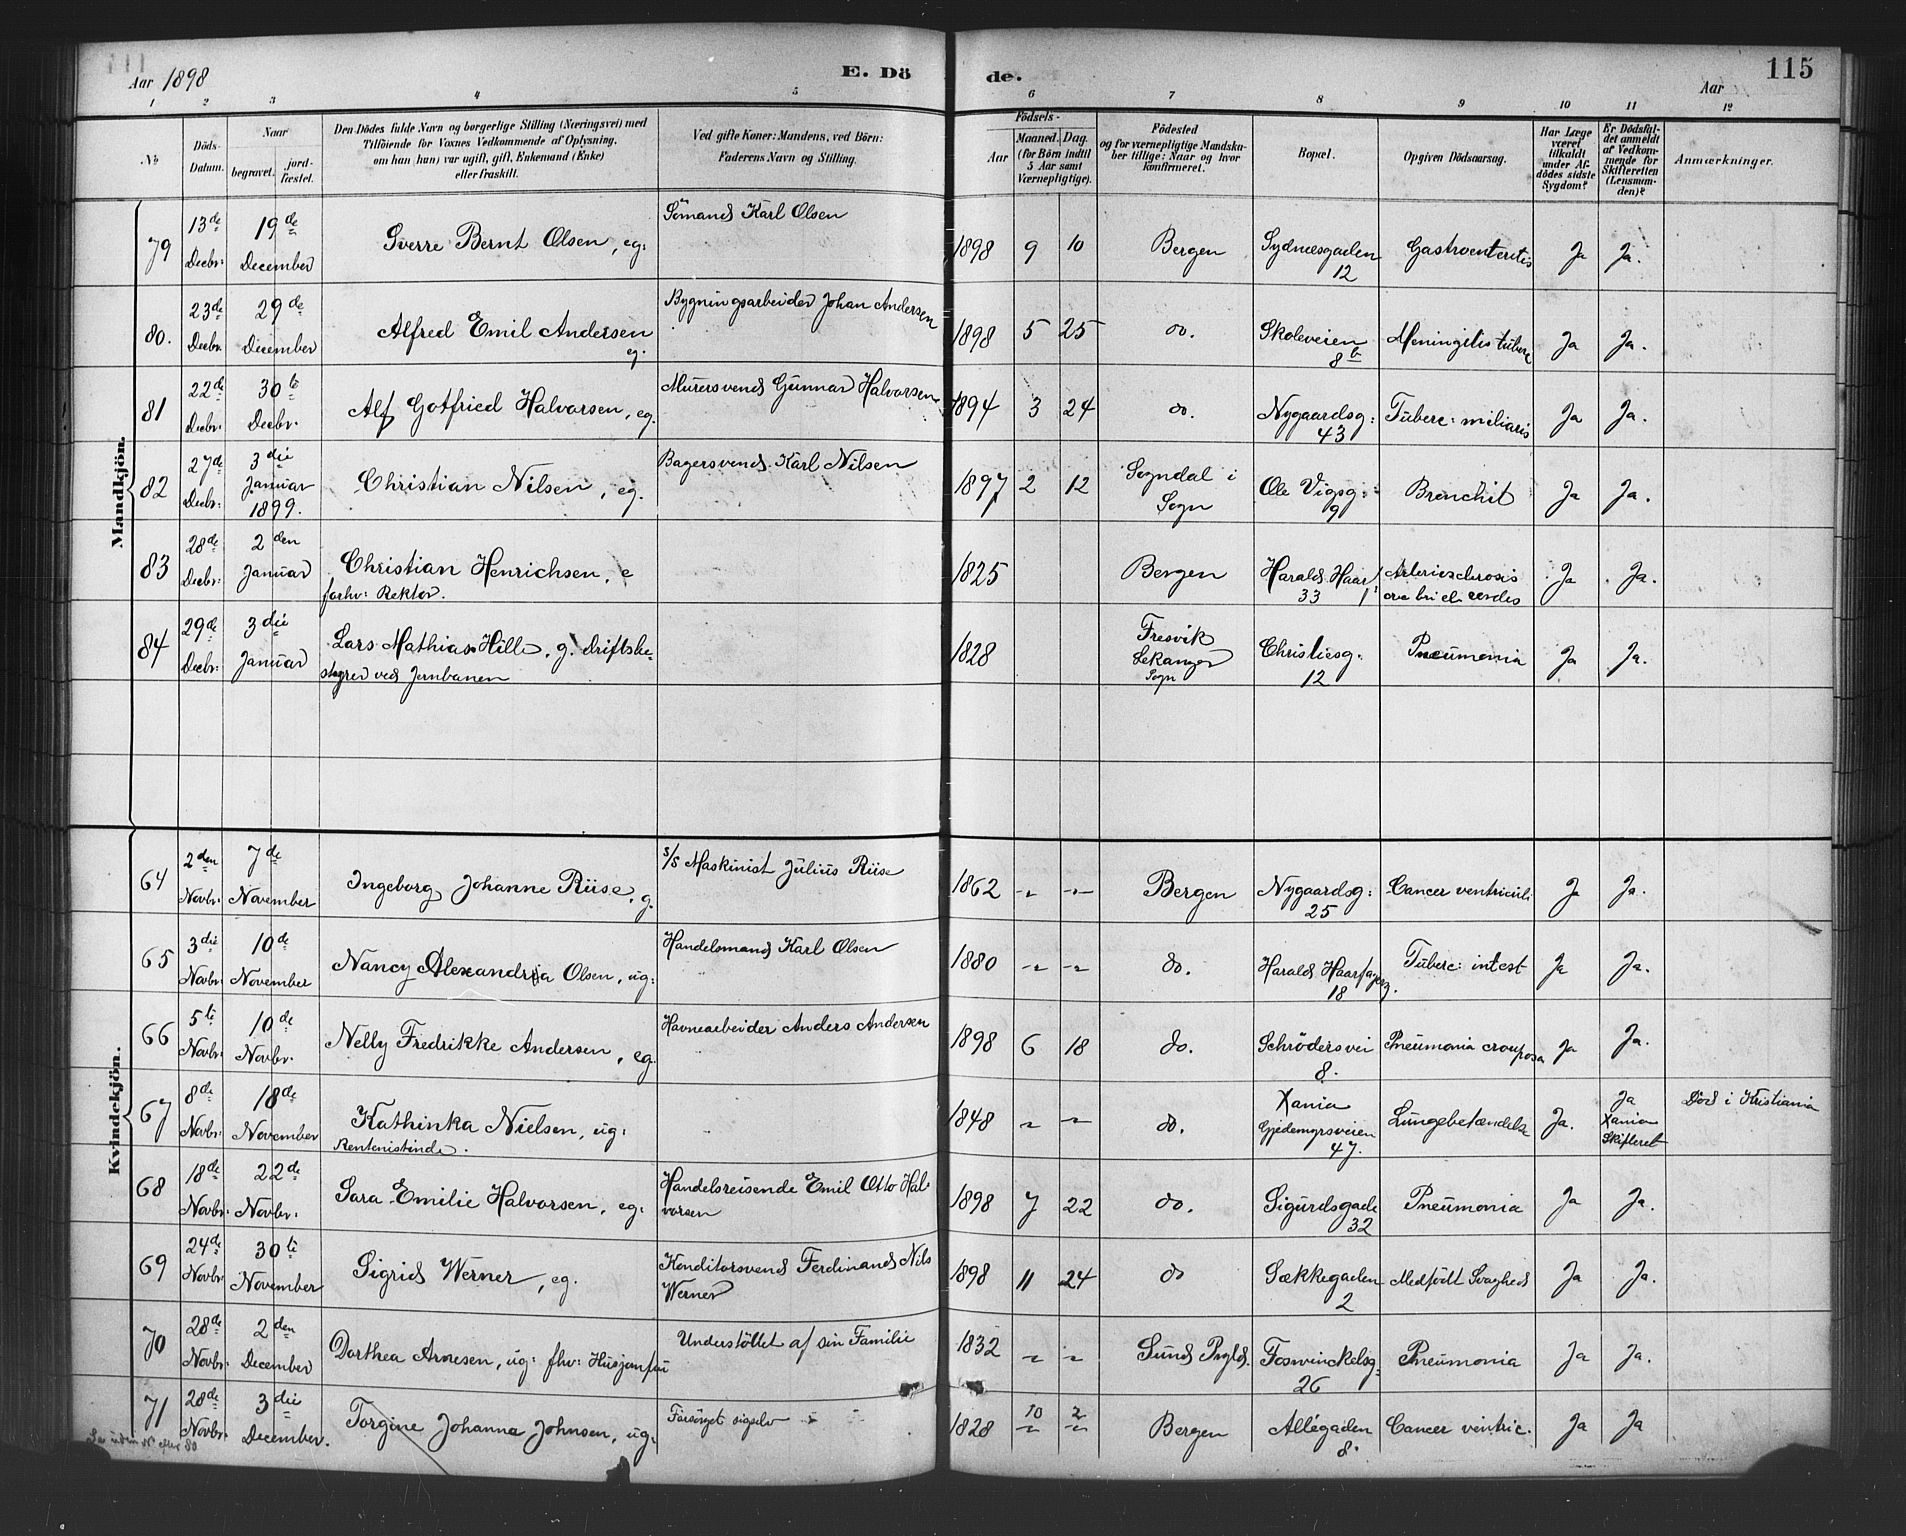 Aar 1898
E. Dö de.
115
Aar
1 2 3 4 5 6 7 8 9 10 11 12
No
Döds-Datum.
Naar
begravet.
jord-fæstet.
Den Dödes fulde Navn og borgerlige Stilling (Næringsvei) med
Tilföiende for Voxnes Vedkommende af Oplysning,
om han (hun) var ugift, gift, Enkemand (Enke)
eller fraskilt.
Ved gifte Koner: Mandens, ved Börn:
Faderens Navn og Stilling.
Födsels-
Aar
Maaned. Dag.
(for Börn indtil
5 Aar samt
Værnepligtige).
Födested
og for værnepligtige Mandska-
ber tillige: Naar og hvor
konfirmeret.
Bopæl.
Opgiven Dödsaarsag.
Har Læge
været
tilkaldt
under Af-
dödes sidste
Sygdom?
Er Dödsfal-
det anmeldt
af Vedkom-
mende for
Skifteretten
(Lensman-
den)?
Anmærkninger.
Mandkjön.
79 13de Decbr: 19de December Sverre Bernt Olsen, eg: Sömand Karl Olsen 1898 9 10 Bergen Sydnæsgaden 12 Gastroenteritis Ja Ja.
80. 23de Decbr. 29de December Alfred Emil Andersen eg. Bygningsarbeider Johan Andersen 1898 5 25 do. Skoleveien 8b Meningitis tuberc Ja Ja.
81 22de Decbr: 30te Decbr. Alf Gotfried Halvorsen, eg. Murersvend Gunnar Halvorsen 1894 3 24 do. Nygaardsg: 43 Tuberc: miliaris Ja Ja.
82 27de Decbr: 3die Januar 1899. Christian Nilsen, eg. Bagersvend Karl Nilsen 1897 2 12 Sogndal i Sogn Ole Vigsg: 9 Bronchit Ja Ja.
83 28de Decbr: 2den Januar Christian Henrichsen, e
forhv: Rektor. 1825 Bergen Harald Haarf: 33 Arteriesclerosis Ja Ja.
84 29de Decbr: 3die Januar Lars Mathias Hille, g. driftsbe-
styrer ved Jernbanen 1828 Fresvik Lekanger Sogn Christiesg. 12 Pneumonia Ja Ja.
Kvindekjön.
64 2den Novbr: 7de November Ingeborg Johanne Riise, g. s/s Maskinist Julius Riise 1862 -"- -"- Bergen Nygaardsg: 25 Cancer ventriculi Ja Ja.
65 3die Novbr: 10de November Nancy Alexandria Olsen, ug: Handelsmand Karl Olsen 1880 -"- -"- do. Harald Haarfagersg. 18 Tuberc: intest Ja Ja.
66 5te Novbr: 10de Novbr. Nelly Fredrikke Andersen, eg: Havnearbeider Anders Andersen 1898 6 18 do. Schrödersvei 8. Pneumonia crouposa Ja Ja.
67 8de Novbr: 18de November Kathinka Nielsen, ug:
Rentenistinde. 1848 " -"- do. Xania Gjedemyrsveien 47. Lungebetændelse Ja. Ja Xania Skifteret Död i Kristiania
68 18de Novbr: 22de Novbr: Sara Emilie Halvorsen, eg: Handelsreisende Emil Otto Hal-
vorsen 1898 7 22 do. Sigurdsgade 32 Pneumonia Ja Ja.
69 24de Novbr: 30te November Sigrid Werner, eg. Konditorsvend Ferdinand Nils
Werner 1898 11 24 do Sækkegaden 2 Medfödt Svaghed Ja Ja.
70 28de Novbr: 2den December Dorthea Arnesen, ug: fhv: Husjomfru Understöttet af sin Familie 1832 " " Sund Prgld. Foswinckelsg: 26 Pneumonia Ja Ja.
71 28de Novbr: 3die December. Torgine Johanna Johnsen, ug: Forsörget sigselv 1828 10 2 Bergen Allégaden 8. Cancer ventric. Ja Ja